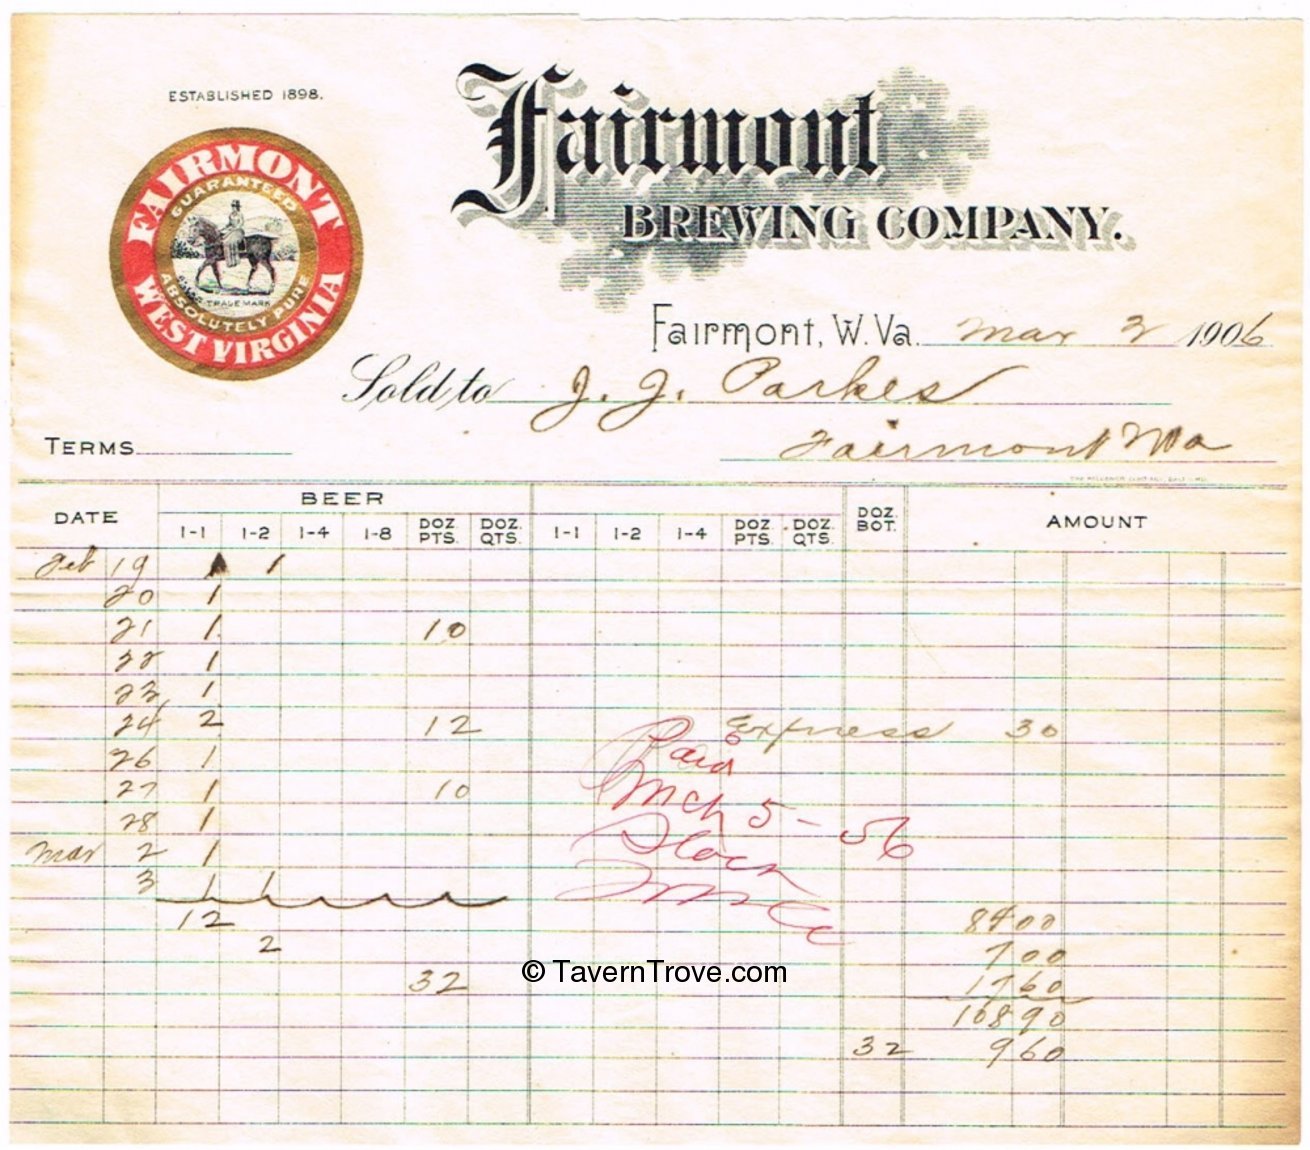 ESTABLISHED 1898.
FAIRMONT
GUARANTEED
TRADE MARK
ABSOLUTELY PURE
WEST VIRGINIA
Fairmont
BREWING COMPANY.
Fairmont, W. Va. Mar 3 1906
Sold to J. J. Parkes
TERMS
Fairmont Wva
DATE BEER DOZ. BOT. AMOUNT
1-1 1-2 1-4 1-8 DOZ. PTS. DOZ. QTS. 1-1 1-2 1-4 DOZ. PTS. DOZ. QTS.
Feb 19 1 1
20 1
21 1 10
22 1
23 1
24 2 12 Express 30
26 1
27 1 10
28 1
Mar 2 1
3 1 1
Paid
Mch 5 - 06
12 8400
2 700
32 1760
10890
32 960
© TavernTrove.com